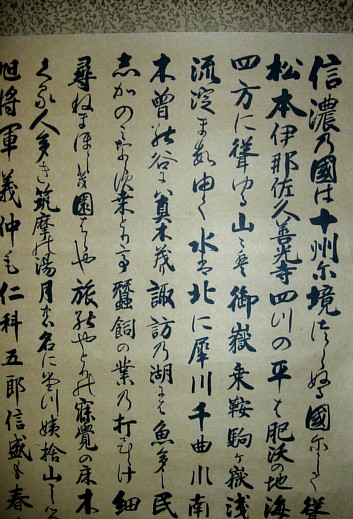 信濃乃國は十州尓境つらぬる國尓して
松本伊那佐久善光寺四つの平は肥沃の地海
四方に聳ゆる山々は御嶽乗鞍駒ヶ嶽浅
流れ淀まずゆく水は北に犀川千曲川南
木曽の谷には真木茂り諏訪乃湖には魚多し民
しかのみならず桑とりて蠶飼の業の打ひらけ細
尋ねまほしき園はらや旅のやどりの寐覚の床木
くる人多き筑摩の湯月の名にたつ姨捨山し
旭将軍義仲も仁科五郎信盛も春